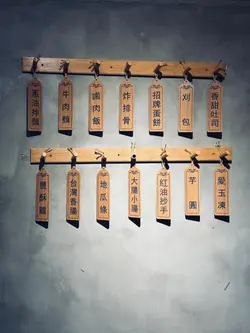 蔥油拌麵
牛肉麵
滷肉飯
炸排骨
招牌蛋餅
刈包
香甜吐司
鹽酥雞
台灣香腸
地瓜條
大腸小腸
紅油抄手
芋圓
愛玉凍